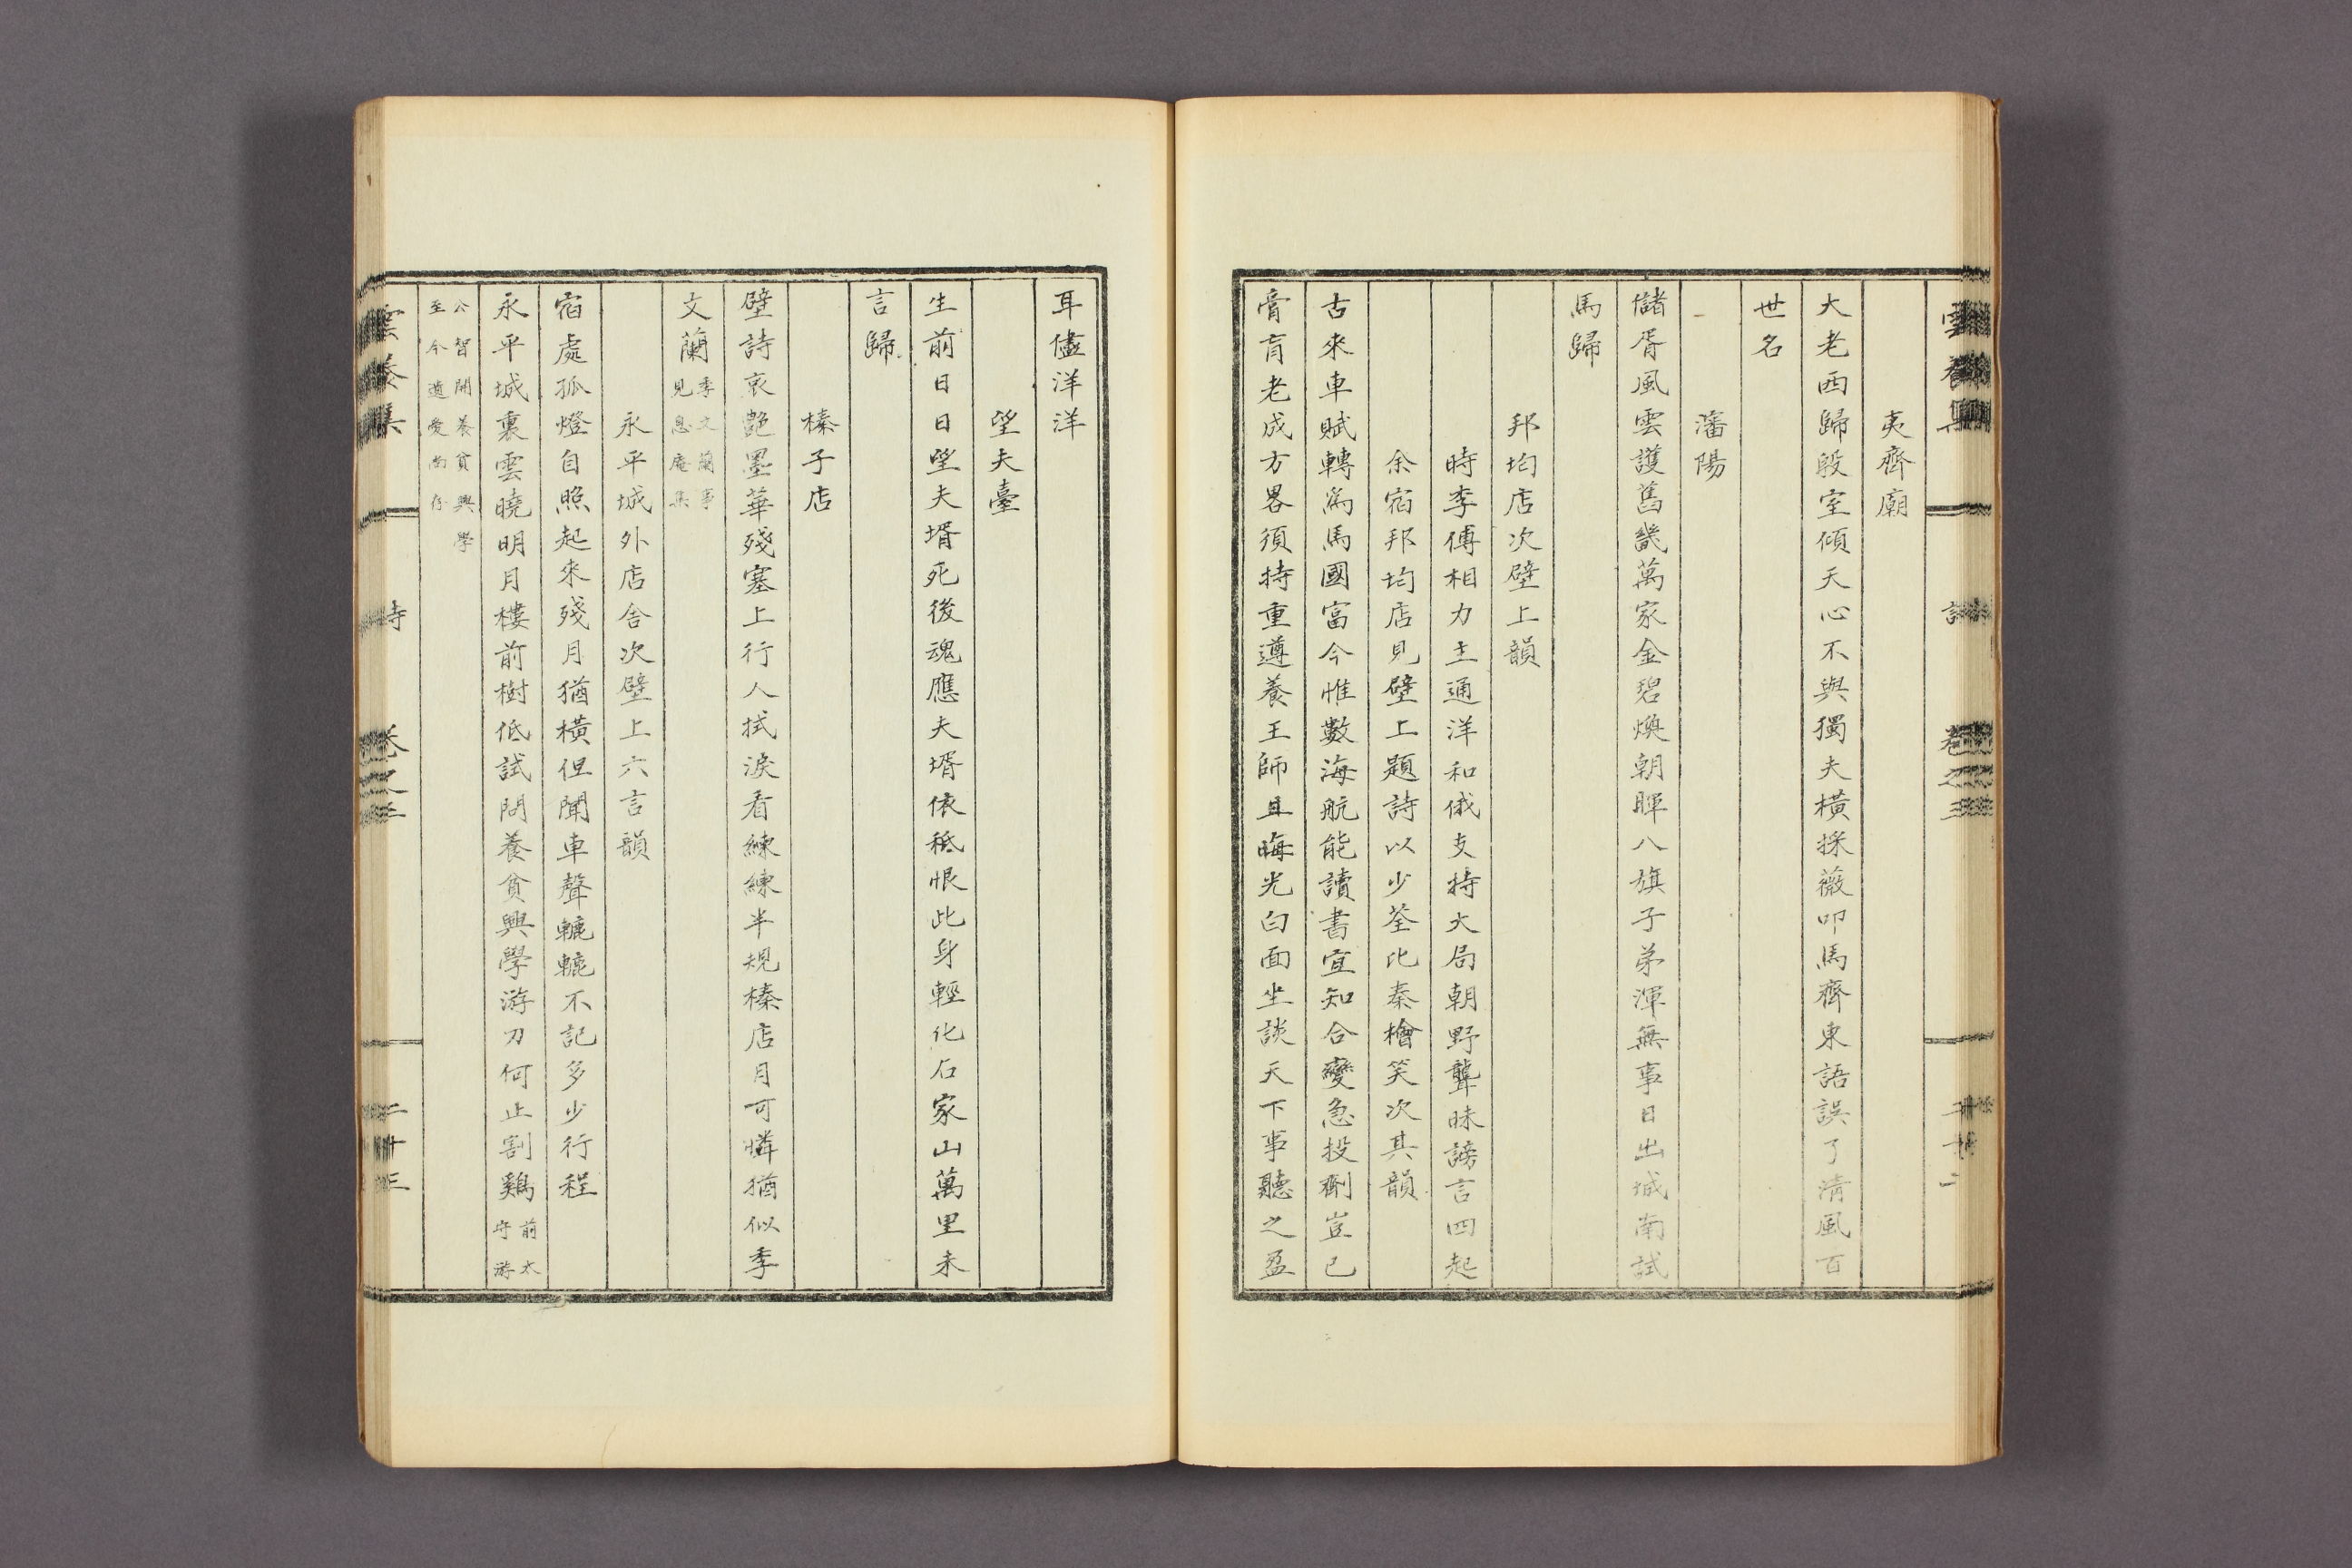 夷齊廟
大老西歸殷室傾天心不與獨夫橫採薇叩馬齊東語誤了淸風百
世名
瀋陽
儲胥風雲護舊畿萬家金碧煥朝暉八旗子弟渾無事日出城南試
馬歸
邦均店次壁上韻
時李傅相力主通洋和俄支持大局朝野聾昧謗言四起
余宿邦均店見壁上題詩以少荃比秦檜笑次其韻
古來車賦轉爲馬國富今惟數海航能讀書宜知合變急投劑豈已
膏肓老成方畧須持重遵養王師且晦光白面坐談天下事聽之盈
耳儘洋洋
望夫臺
生前日日望夫壻死後魂應夫壻依秪恨此身輕化石家山萬里未
言歸
榛子店
壁詩哀艶墨華殘塞上行人拭淚看練練半規榛店月可憐猶似季
文蘭季文蘭事見息庵集
永平城外店舍次壁上六言韻
宿處孤燈自照起來殘月猶橫但聞車聲轆轆不記多少行程
永平城裏雲曉明月樓前樹低試問養貧興學游刀何止割鷄前太守游
公智開養貧興學至今遺愛尙存
雲養集 詩 卷之三 二十三